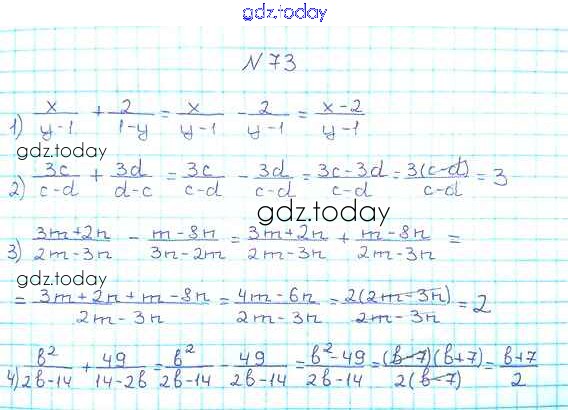 gdz.today
N 73
1) x/(y-1) + 2/(1-y) = x/(y-1) - 2/(y-1) = (x-2)/(y-1)
gdz.today
2) 3c/(c-d) + 3d/(d-c) = 3c/(c-d) - 3d/(c-d) = (3c-3d)/(c-d) = 3(c-d)/(c-d) = 3
gdz.today
3) (3m+2n)/(2m-3n) - (m-8n)/(3n-2m) = (3m+2n)/(2m-3n) + (m-8n)/(2m-3n) =
gdz.today
= (3m+2n+m-8n)/(2m-3n) = (4m-6n)/(2m-3n) = 2(2m-3n)/(2m-3n) = 2
4) b²/(2b-14) + 49/(14-2b) = b²/(2b-14) - 49/(2b-14) = (b²-49)/(2b-14) = (b-7)(b+7)/2(b-7) = (b+7)/2